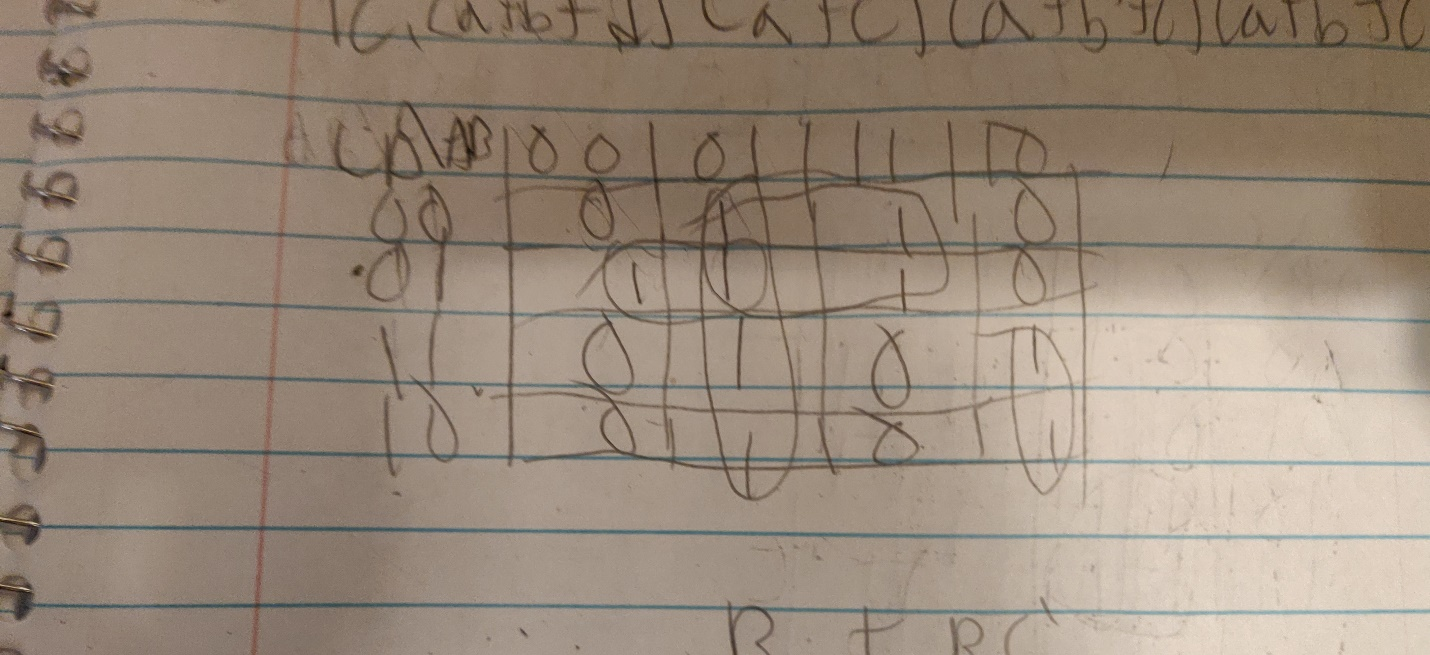 (a+b+d) (a+c) (a+b+c) (a+b+c
CD\AB 00 01 11 10
00 0 1 1 0
01 1 1 1 0
11 0 1 0 1
10 0 1 0 1
B + BC'